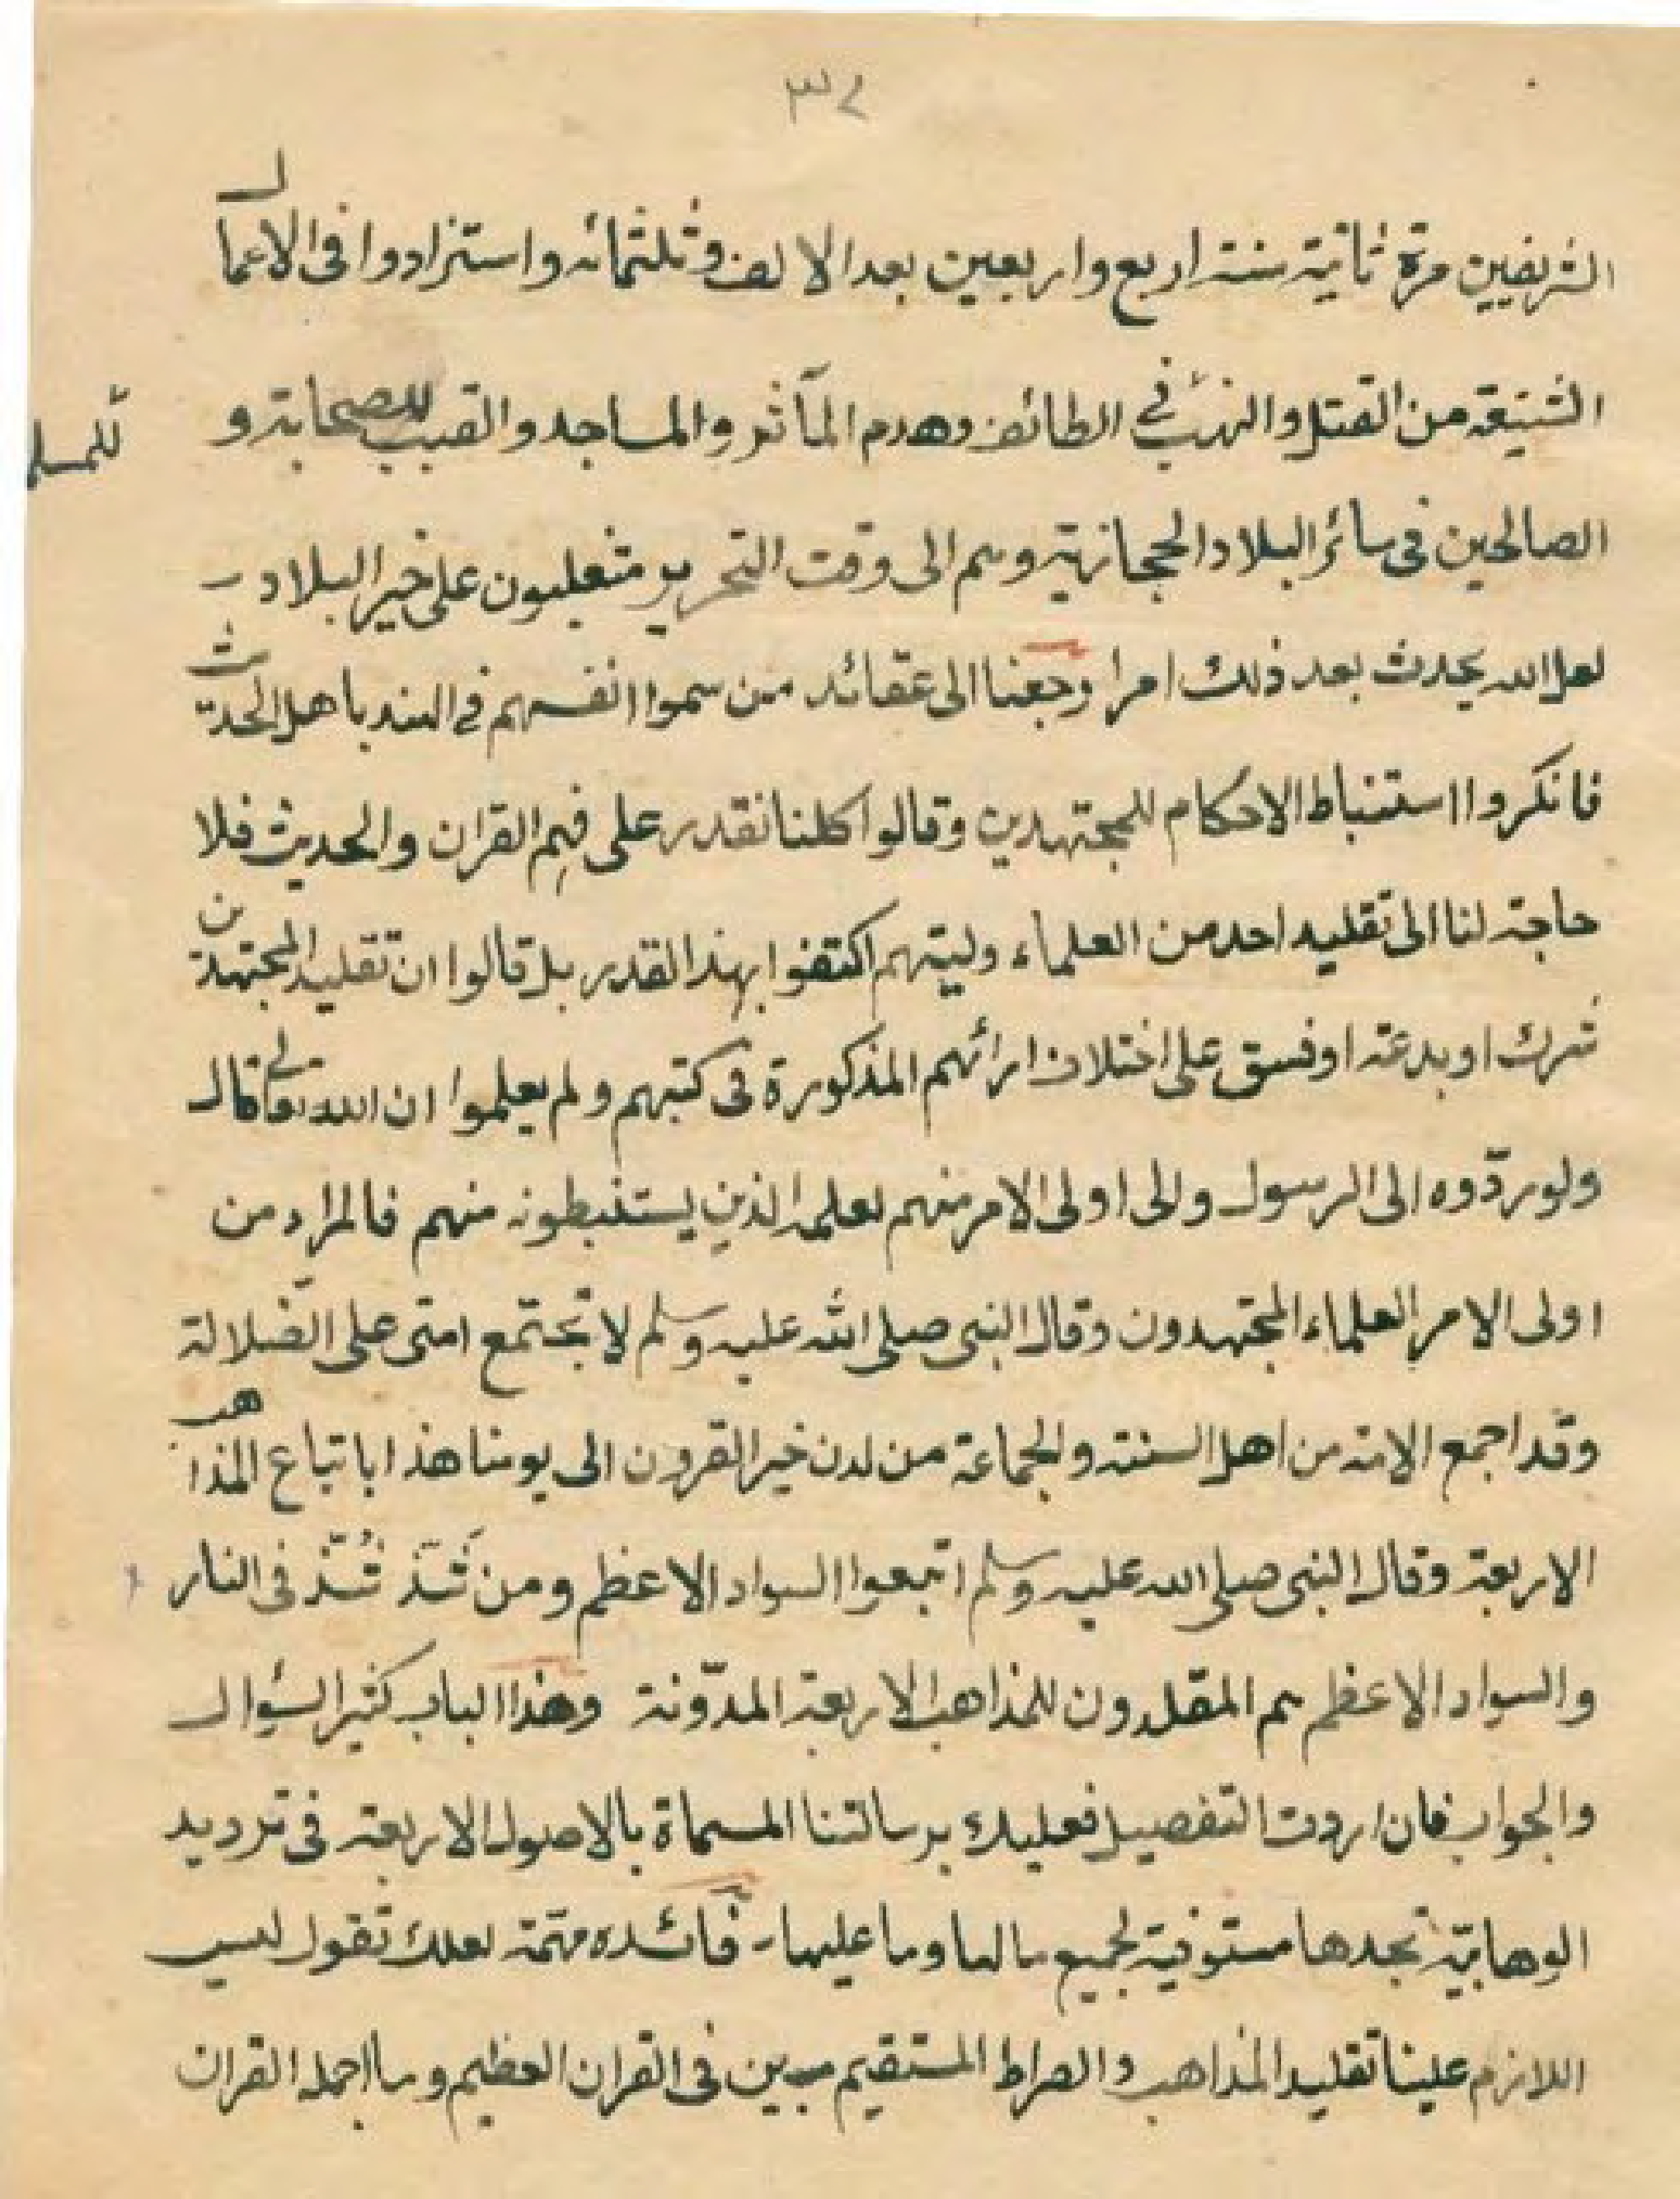 ٣٤
الشريفين مرة ثانية سنة اربع واربعين بعد الالف وثلثمائه واستزادوا فى الاعمال
الشنيعة من القتل والنهب في الطائف وهدم المآثر والمساجد والقبب للصحابة و
للمسلم
الصالحين فى سائر البلاد الحجازية وهم الى وقت التحرير متغلبون على خير البلاد -
لعل الله يحدث بعد ذلك امرا رجعنا الى عقائد من سموا انفسهم في الهند باهل الحديث
فانكروا استنباط الاحكام للمجتهدين وقالوا كلنا نقدر على فهم القران والحديث فلا
حاجة لنا الى تقليد احد من العلماء وليتهم اكتفوا بهذا القدر بل قالوا ان تقليد المجتهدين
شرك او بدعة او فسق على اختلاف ارائهم المذكورة فى كتبهم ولم يعلموا ان الله تعالى قال
ولو ردّوه الى الرسول والى اولى الامر منهم لعلمه الذين يستنبطونه منهم فالمراد من
اولى الامر العلماء المجتهدون وقال النبى صلى الله عليه وسلم لا تجتمع امتى على الضّلالة
وقد اجمع الامة من اهل السنة والجماعة من لدن خير القرون الى يومنا هذا باتباع المذاهب
الاربعة وقال النبى صلى الله عليه وسلم اتبعوا السواد الاعظم ومن شَذّ شُذّ فى النار
والسواد الاعظم هم المقلدون للمذاهب الاربعة المدّونة وهذا الباب كثير السؤال
والجواب فان اردت التفصيل فعليك برسالتنا المسماة بالاصول الاربعة فى ترديد
الوهابيّة تجدها مستوفية لجميع مالها وما عليها - فائده مهمّة لعلك تقول ليس
اللازم علينا تقليد المذاهب والصراط المستقيم مبين فى القران العظيم وما اجمله القران